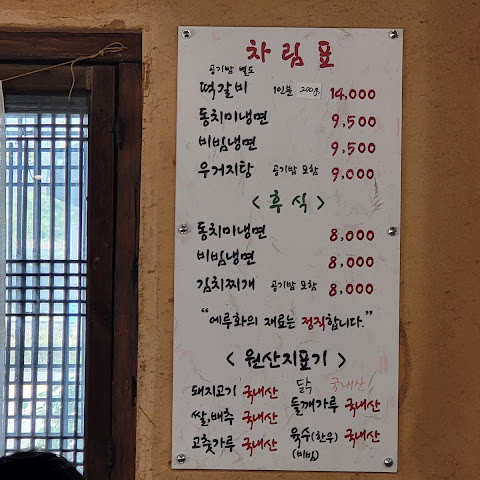 차림표
공기밥 별도
떡갈비 1인분 200g 14,000
동치미냉면 9,500
비빔냉면 9,500
우거지탕 공기밥 포함 9,000
<후식>
동치미냉면 8,000
비빔냉면 8,000
김치찌개 공기밥 포함 8,000
"에루화의 재료는 정직합니다."
<원산지표기>
돼지고기 국내산 닭 국내산
쌀,배추 국내산 들깨가루 국내산
고춧가루 국내산 육수(한우) 국내산
(비빔)